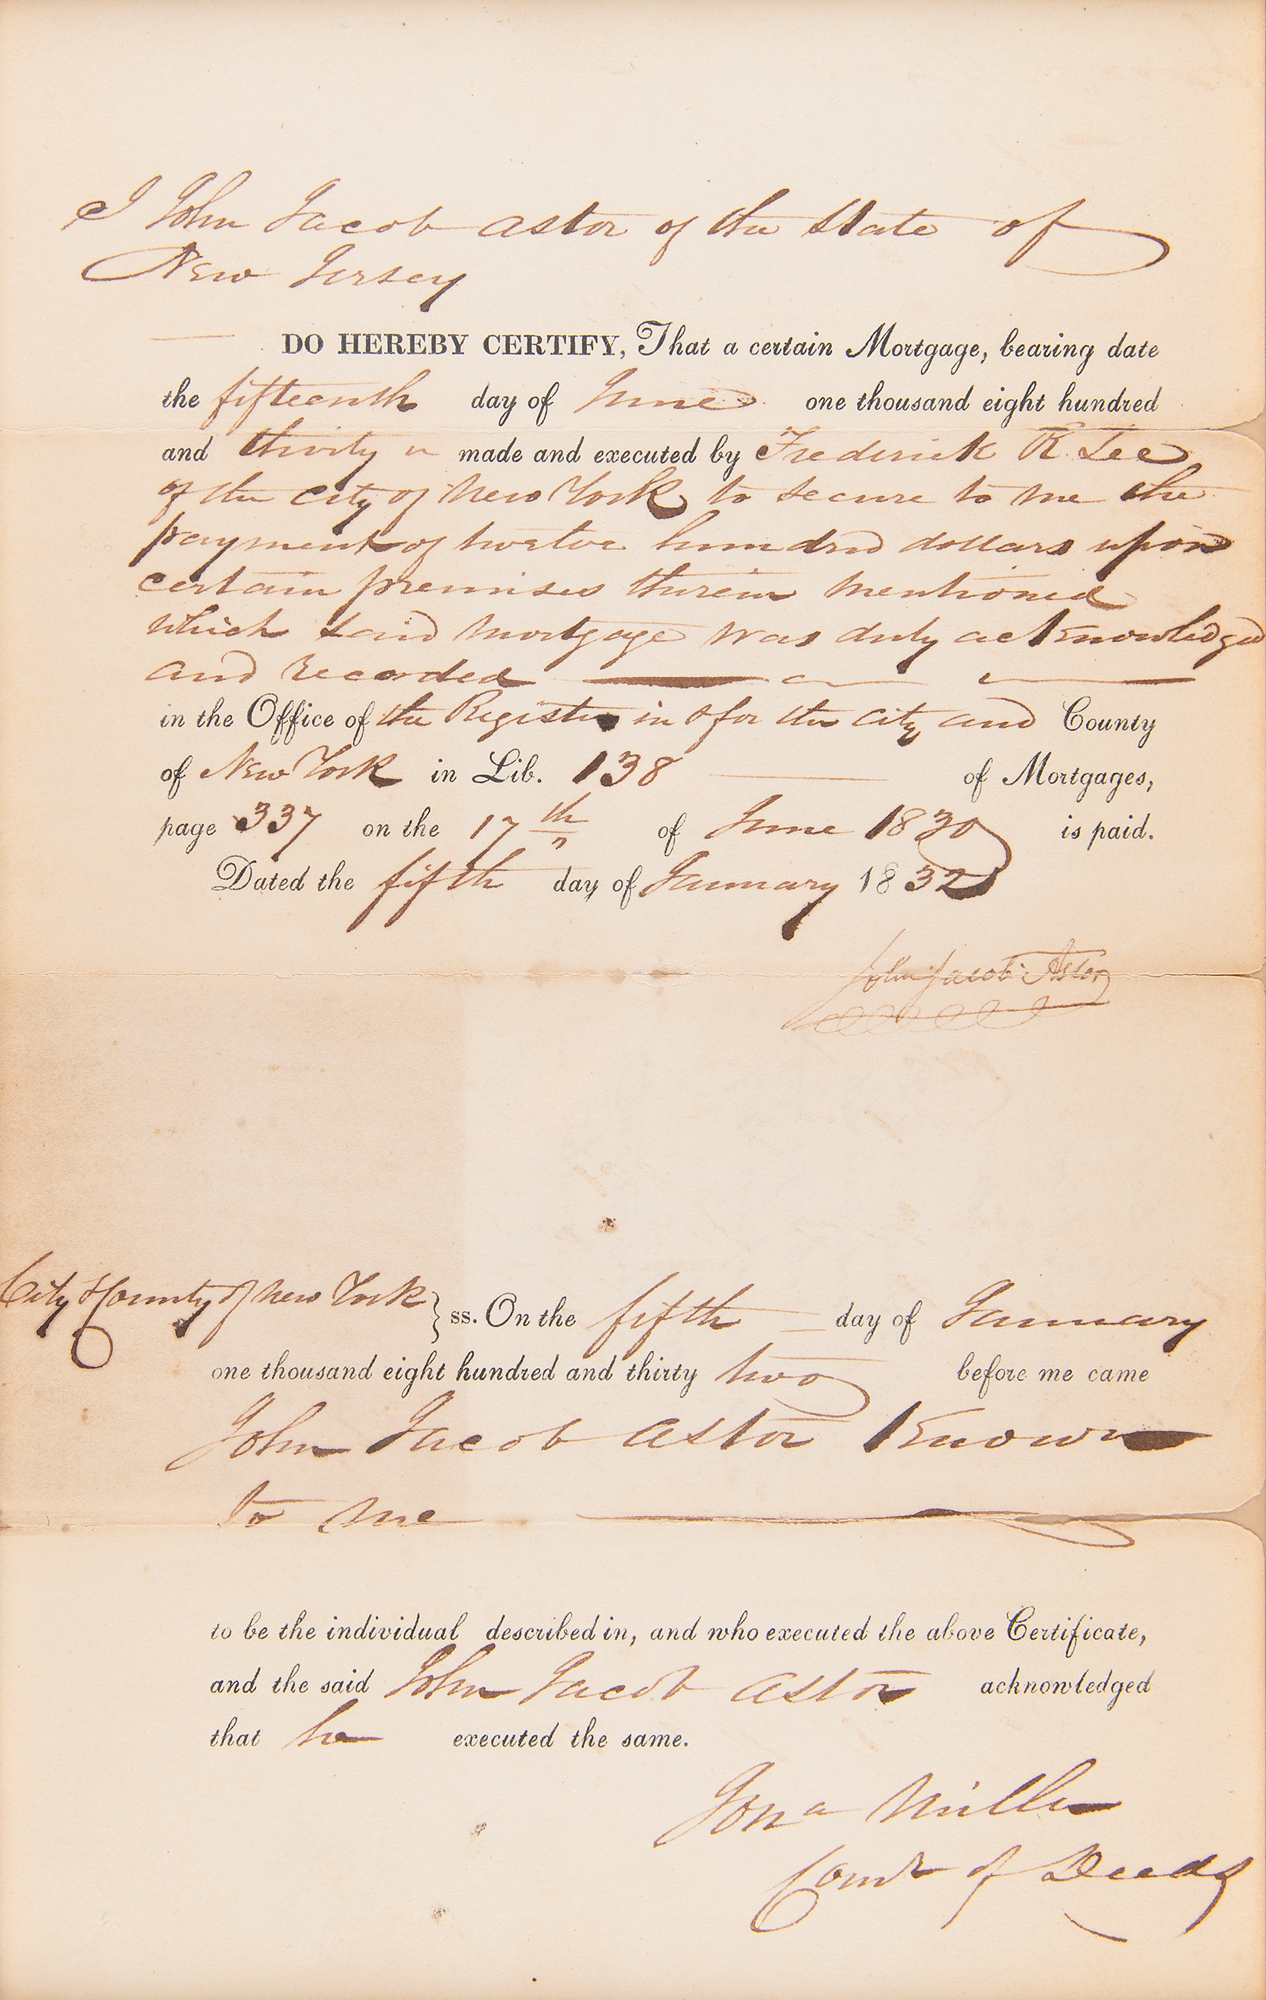 I John Jacob Astor of the State of
New Jersey
DO HEREBY CERTIFY, That a certain Mortgage, bearing date
the fifteenth day of June one thousand eight hundred
and thirity made and executed by Frederick R Lee
of the City of New York to secure to me the
payment of twelve hundred dollars upon
certain premises therein mentioned
which said mortgage was duly acknowledged
and recorded
in the Office of the Register in & for the City and County
of New York in Lib. 138 of Mortgages,
page 337 on the 17th of June 1830 is paid.
Dated the fifth day of January 1832
John Jacob Astor
City & County of New York } ss. On the fifth day of January
one thousand eight hundred and thirty two before me came
John Jacob Astor Known
to me
to be the individual described in, and who executed the above Certificate,
and the said John Jacob Astor acknowledged
that he executed the same.
Jona Miller
Comr of Deeds